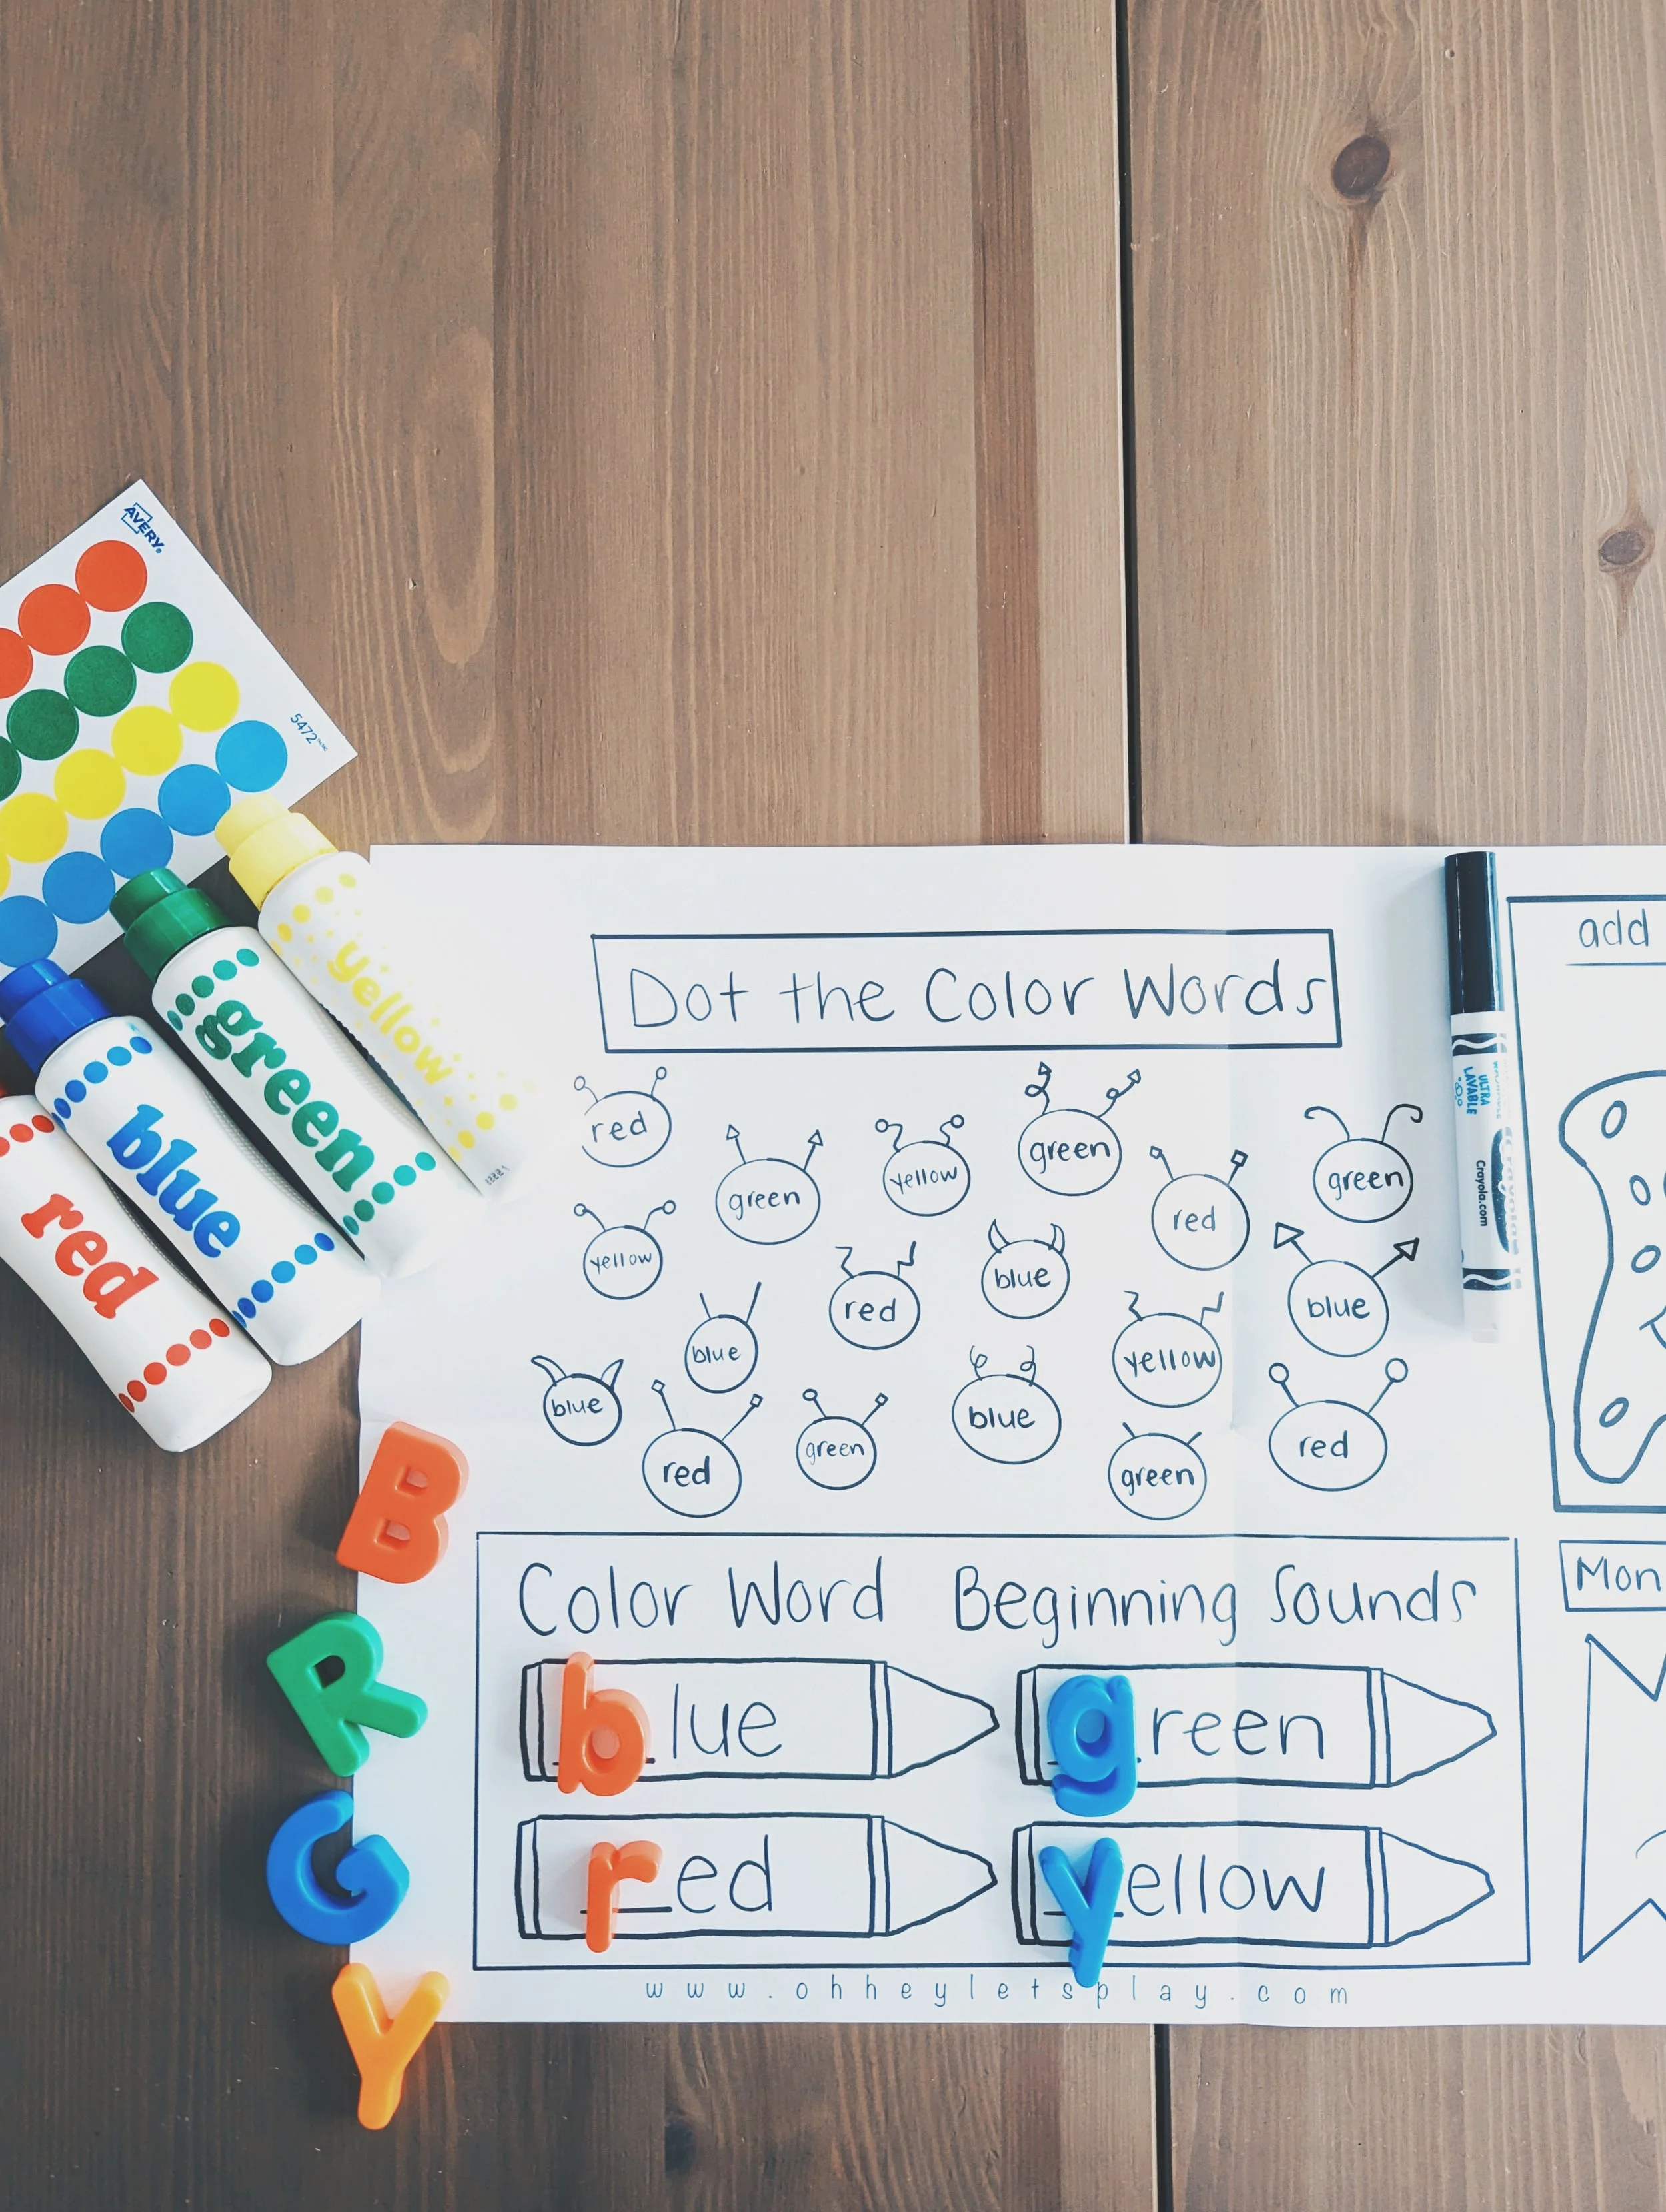 AVERY
5472
yellow
green
blue
red
Dot the Color Words
red
green
yellow
green
red
green
yellow
red
blue
blue
blue
yellow
blue
red
green
blue
green
red
B
R
G
Y
Color Word Beginning Sounds
blue
green
red
yellow
www.ohheyletsplay.com
ULTRA
Crayola.com
add
Mon